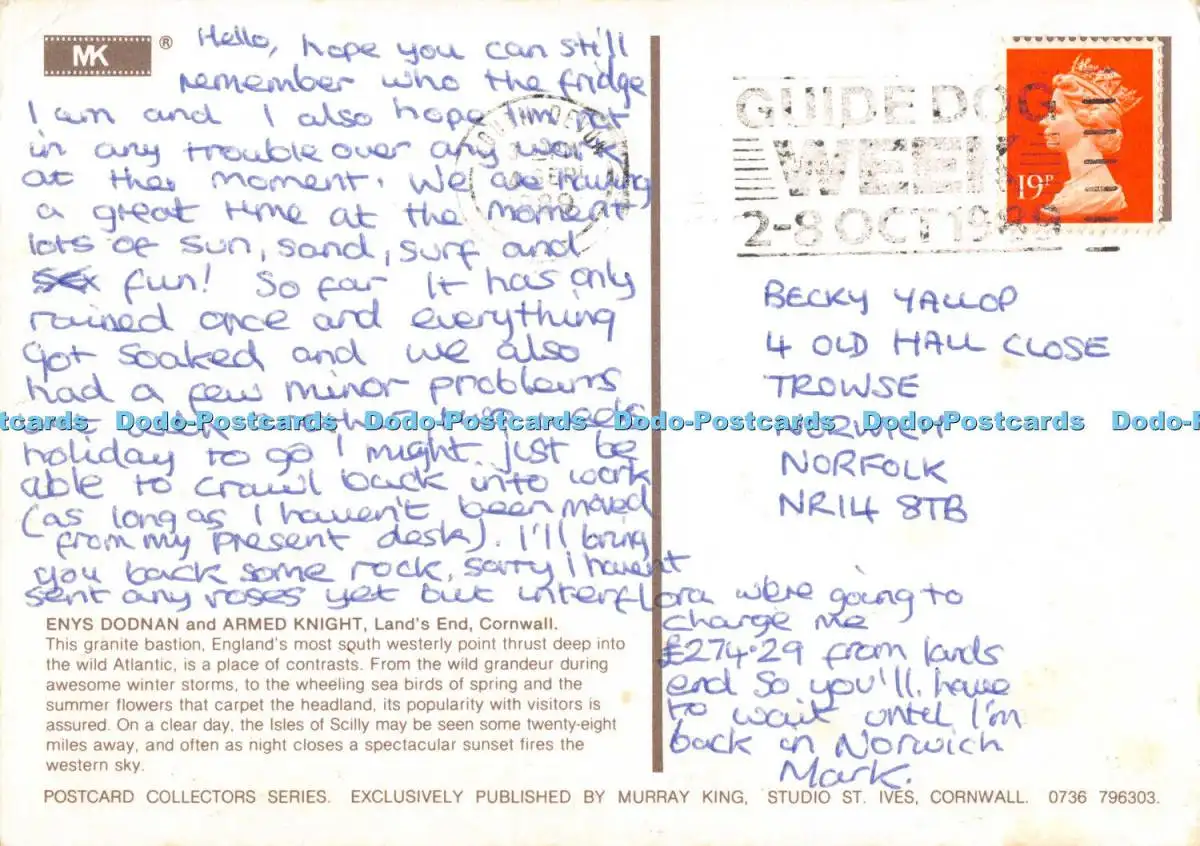 MK ®
Hello, hope you can still
remember who the fridge
I am and I also hope I'm not
in any trouble over any work
at ther moment. We are having
a great time at the moment
lots of sun, sand, surf and
sex fun! So far It has only
rained once and everything
got soaked and we also
had a few minor problems
holiday to go I might just be
able to crawl back into work
(as long as I haven't been moved
from my present desk). I'll bring
you back some rock, sorry I haven't
sent any roses yet but interflora were going to
charge me
£274.29 from lands
end so you'll have
to wait until I'm
back in Norwich
Mark.
GUIDE DOG
WEEK
2-8 OCT 1989
19P
BECKY YALLOP
4 OLD HALL CLOSE
TROWSE
NORWICH
NORFOLK
NR14 8TB
Dodo-Postcards Dodo-Postcards Dodo-Postcards Dodo-Postcards Dodo-Postcards
ENYS DODNAN and ARMED KNIGHT, Land's End, Cornwall.
This granite bastion, England's most south westerly point thrust deep into
the wild Atlantic, is a place of contrasts. From the wild grandeur during
awesome winter storms, to the wheeling sea birds of spring and the
summer flowers that carpet the headland, its popularity with visitors is
assured. On a clear day, the Isles of Scilly may be seen some twenty-eight
miles away, and often as night closes a spectacular sunset fires the
western sky.
POSTCARD COLLECTORS SERIES. EXCLUSIVELY PUBLISHED BY MURRAY KING, STUDIO ST. IVES, CORNWALL. 0736 796303.